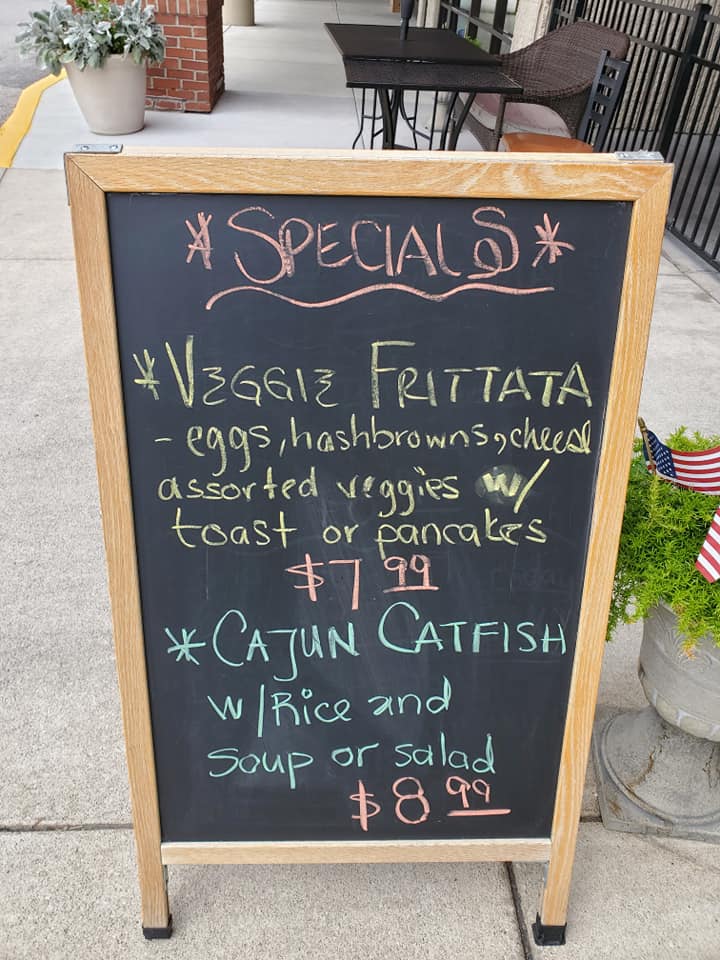 *SPECIALS*
*VEGGIE FRITTATA
- eggs, hashbrowns, cheese
assorted veggies w/
toast or pancakes
$7 99
*CAJUN CATFISH
w/Rice and
soup or salad
$8 99